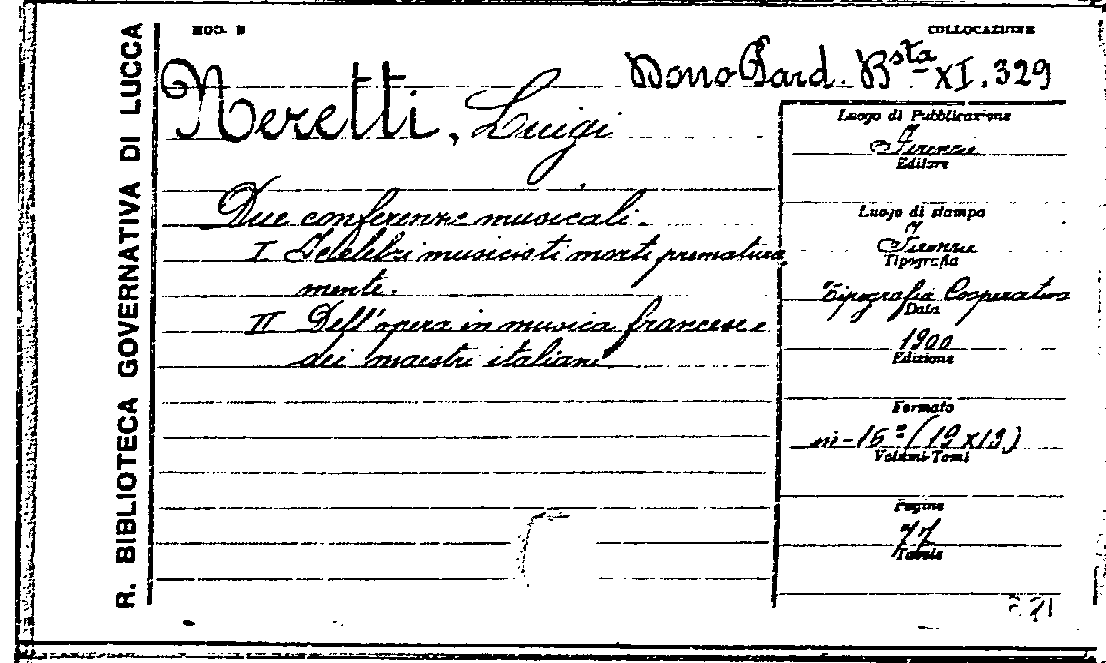 R. BIBLIOTECA GOVERNATIVA DI LUCCA
MOD. B
COLLOCAZIONE
Dono Pard. Bsta XI. 329
Neretti, Luigi
Due conferenze musicali.
I I celebri musicisti morti prematura
mente.
II Dell'opera in musica francese e
dei maestri italiani
Luogo di Pubblicazione
Firenze
Editore
Luogo di stampa
Firenze
Tipografia
Tipografia Cooperativa
Data
1900
Edizione
Formato
in-16º (19 x 13)
Volumi-Tomi
Pagine
77
Tavole